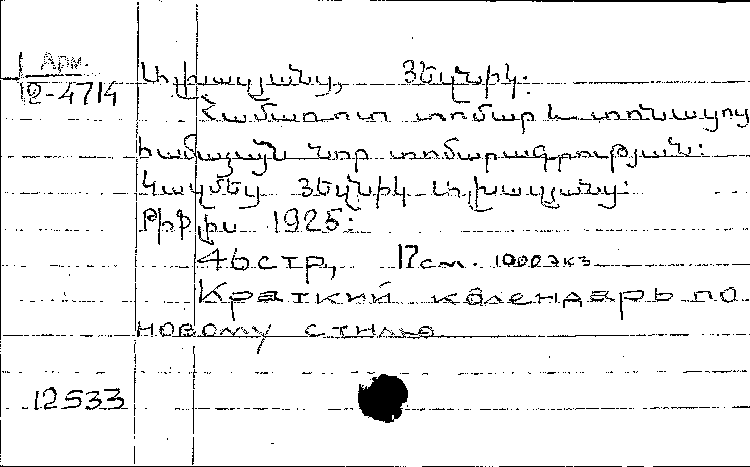 Арм.
2-4714
Ալխազյանց, Յեզնիկ:
Համառոտ տոմար և տոնացույց
համաձայն նոր տոմարագրության:
Կազմեց Յեզնիկ Ալխազյանց:
Թիֆլիս 1925:
46 стр, 17 см. 1000 экз
Краткий календарь по
новому стилю
12533